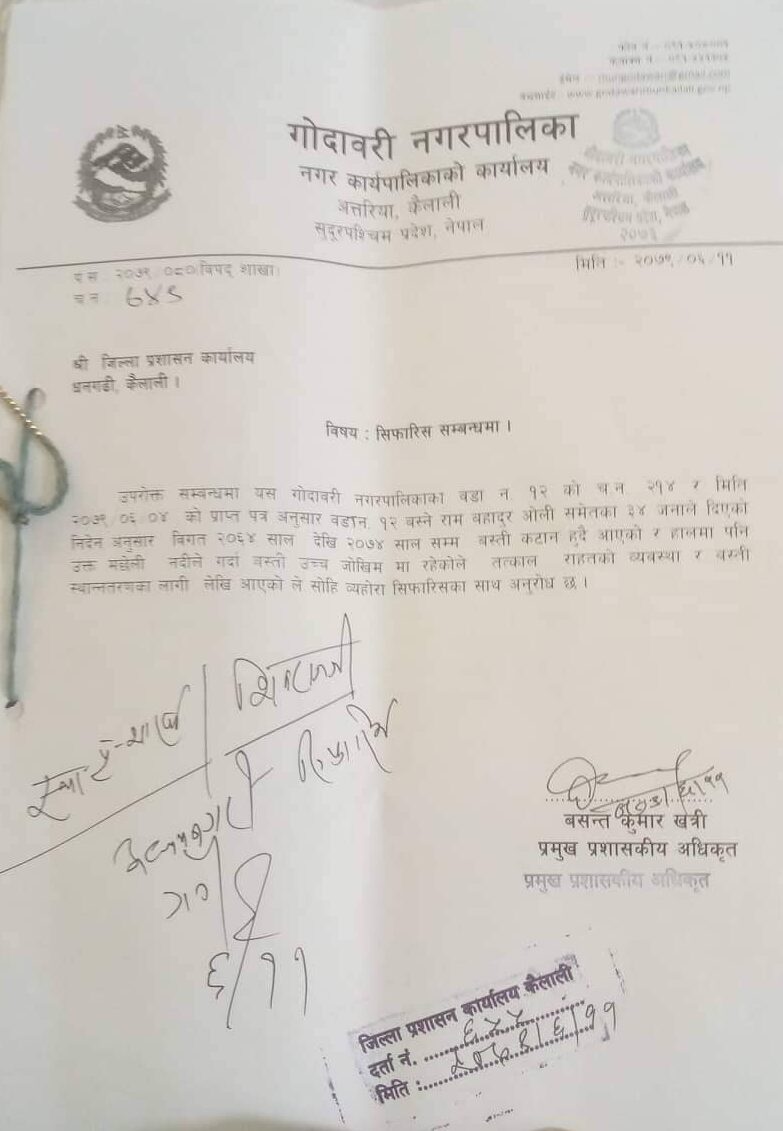 फोन नं. :- ०९१-
ईमेल :- mungodawari@gmail.com
वेबसाईट :- www.godawarimunkailali.gov.np
गोदावरी नगरपालिका
नगर कार्यपालिकाको कार्यालय
अत्तरिया, कैलाली
सुदूरपश्चिम प्रदेश, नेपाल
गोदावरी नगरपालिका
नगर कार्यपालिकाको कार्यालय
अत्तरिया, कैलाली
सुदूरपश्चिम प्रदेश, नेपाल
२०७३
प.स. २०७९/०८०(विपद् शाखा)
च.न. ६४९
मिति :- २०७९/०६/११
श्री जिल्ला प्रशासन कार्यालय
धनगढी, कैलाली ।
विषय : सिफारिस सम्बन्धमा ।
उपरोक्त सम्बन्धमा यस गोदावरी नगरपालिकाका वडा न. १२ को च.न. २१४ र मिति
२०७९/०६/०४ को प्राप्त पत्र अनुसार वडा.न. १२ बस्ने राम बहादुर ओली समेतका ३४ जनाले दिएको
निदेन अनुसार विगत २०६४ साल देखि २०७४ साल सम्म बस्ती कटान हुदै आएको र हालमा पनि
उक्त मछेली नदीले गर्दा वस्ती उच्च जोखिम मा रहेकोले तत्काल राहतको व्यवस्था र बस्ती
स्थान्नतरणका लागी लेखि आएको ले सोहि व्यहोरा सिफारिसका साथ अनुरोध छ ।
६/११
२०७९/६/११
बसन्त कुमार खत्री
प्रमुख प्रशासकीय अधिकृत
प्रमुख प्रशासकीय अधिकृत
जिल्ला प्रशासन कार्यालय कैलाली
दर्ता नं.
मिति : २०७९/६/११